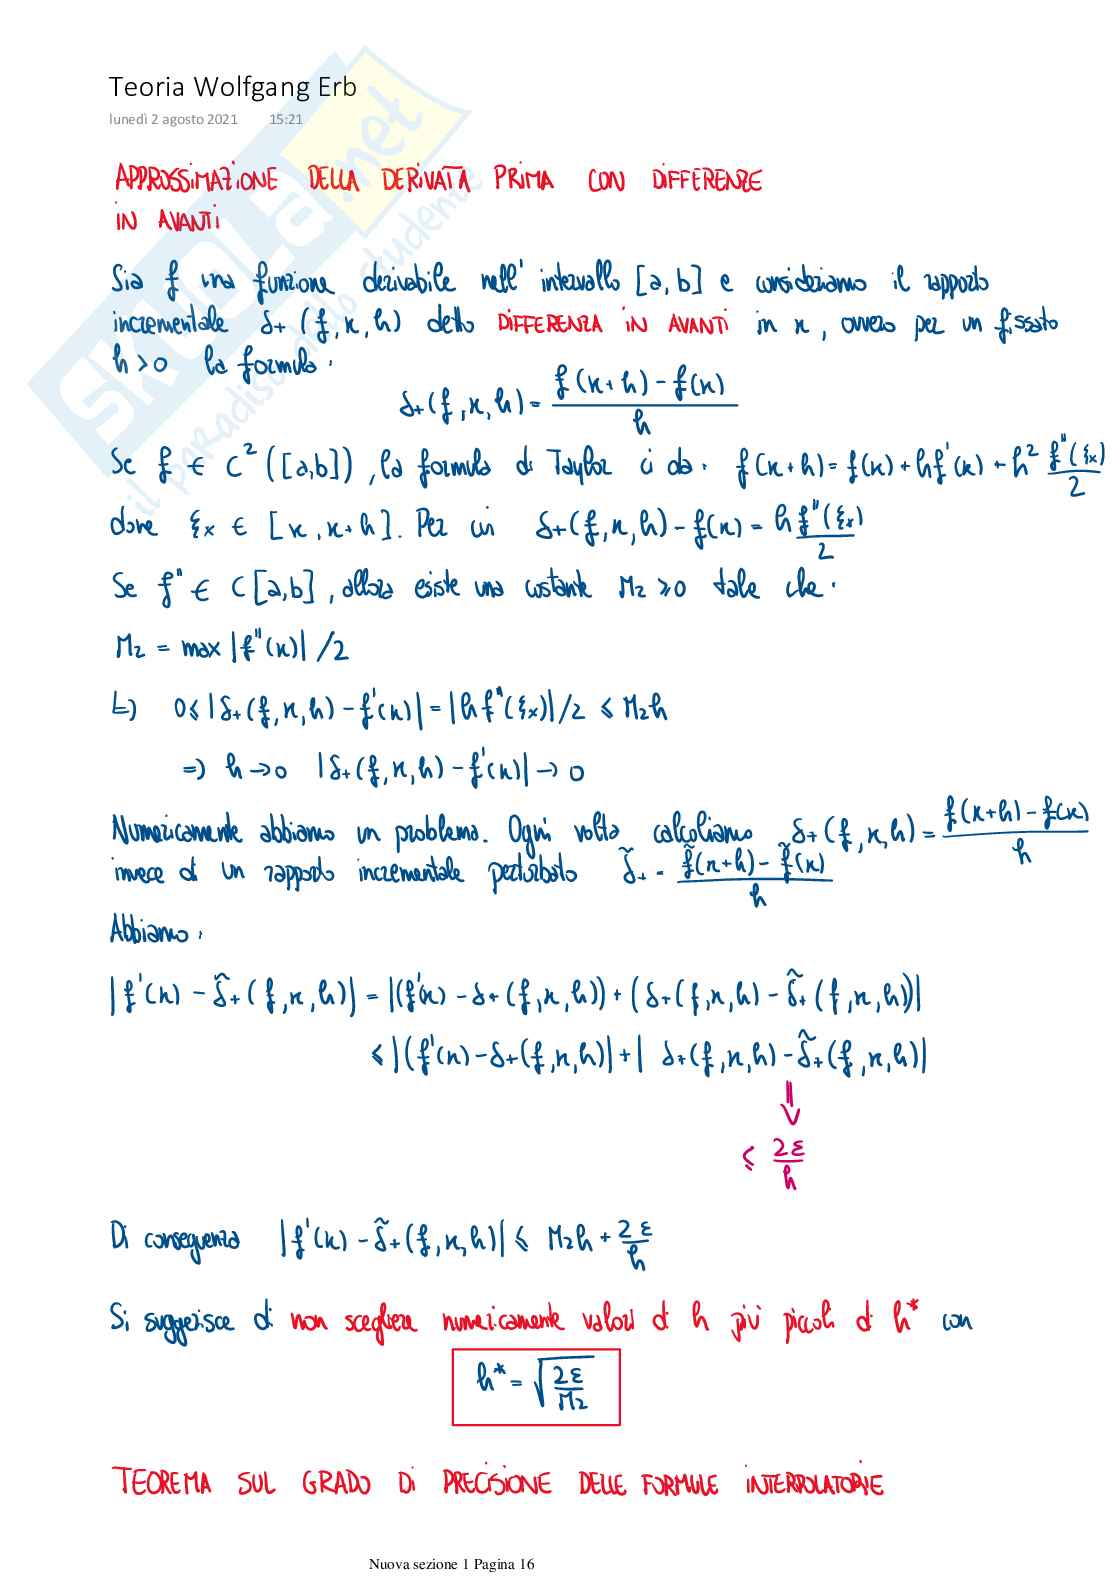 Teoria Wolfgang Erb
lunedì 2 agosto 2021 15:21
SKUOLA.net
il paradiso dello studente
APPROSSIMAZIONE DELLA DERIVATA PRIMA CON DIFFERENZE
IN AVANTI
Sia f una funzione derivabile nell' intervallo [a,b] e consideriamo il rapporto
incrementale δ+ (f,x,h) detto DIFFERENZA IN AVANTI in x, ovvero per un fissato
h>0 la formula:
δ+(f,x,h) = (f(x+h) - f(x))/h
Se f ∈ C²([a,b]), la formula di Taylor ci da: f(x+h) = f(x) + hf'(x) + h² f''(ξx)/2
dove ξx ∈ [x, x+h]. Per cui δ+(f,x,h) - f(x) = h f''(ξx)/2
Se f'' ∈ C[a,b], allora esiste una costante M2 ⩾ 0 tale che:
M2 = max |f''(x)| /2
↳ 0 ⩽ |δ+(f,x,h) - f'(x)| = |h f''(ξx)|/2 ⩽ M2h
=> h → 0 |δ+(f,x,h) - f'(x)| → 0
Numericamente abbiamo un problema. Ogni volta calcoliamo δ+(f,x,h) = (f(x+h) - f(x))/h
invece di un rapporto incrementale perturbato δ̃+ = (f̃(x+h) - f̃(x))/h
Abbiamo:
|f'(x) - δ̃+(f,x,h)| = |(f'(x) - δ+(f,x,h)) + (δ+(f,x,h) - δ̃+(f,x,h))|
⩽ |(f'(x) - δ+(f,x,h)| + | δ+(f,x,h) - δ̃+(f,x,h)|
⇓
⩽ 2ε/h
Di conseguenza |f'(x) - δ̃+(f,x,h)| ⩽ M2h + 2ε/h
Si suggerisce di non scegliere numericamente valori di h più piccoli di h* con
h* = √(2ε/M2)
TEOREMA SUL GRADO DI PRECISIONE DELLE FORMULE INTERPOLATORIE
Nuova sezione 1 Pagina 16